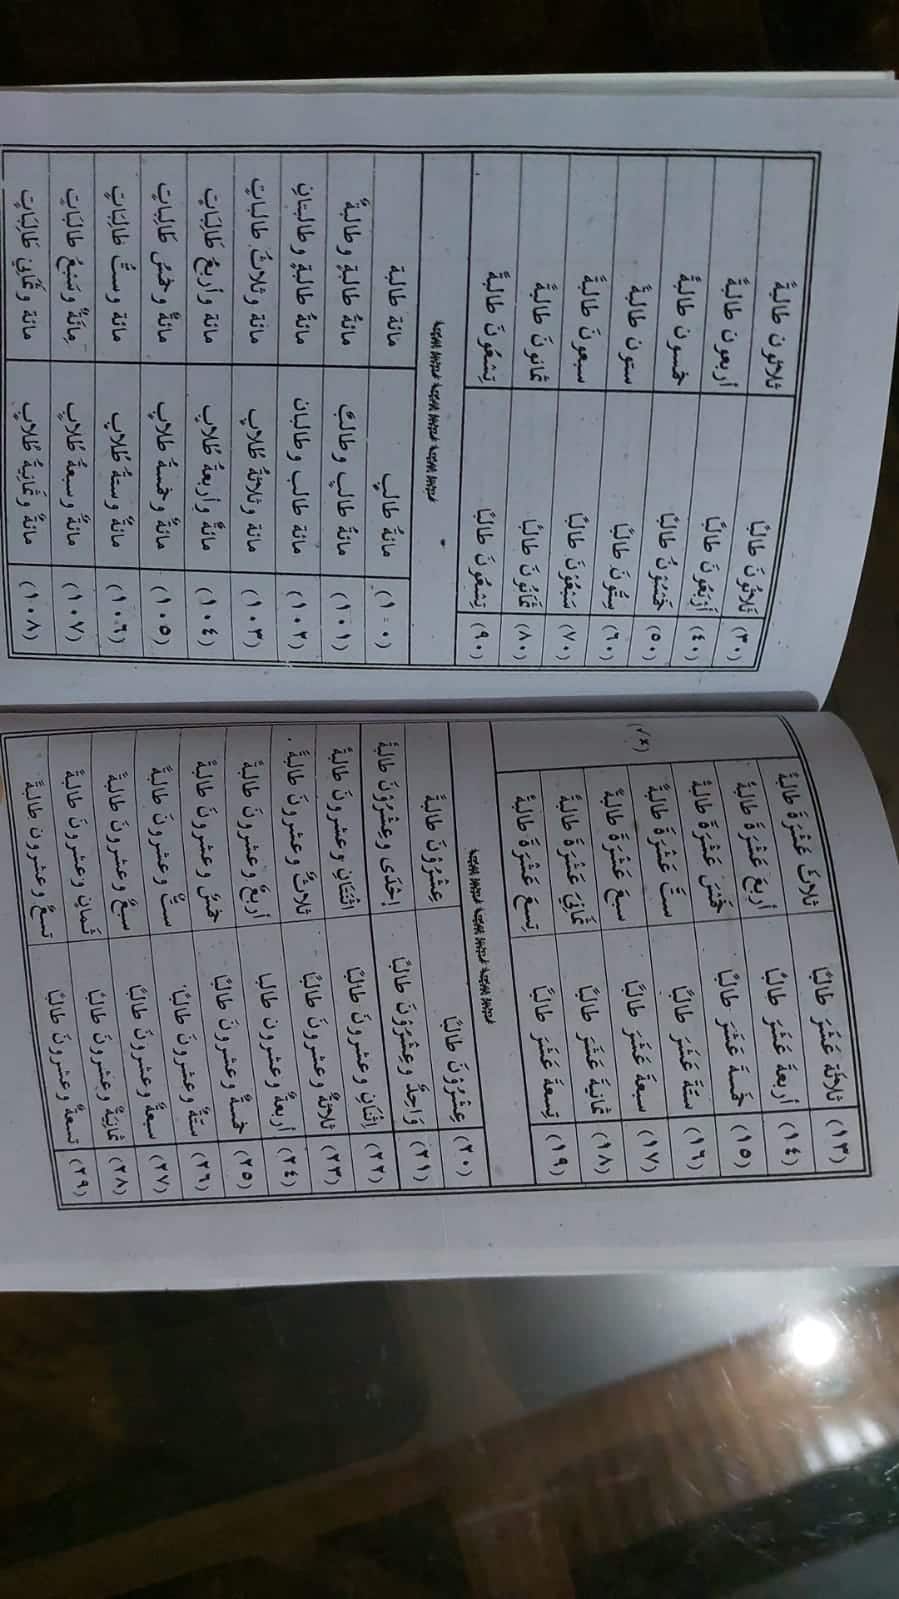 (١٣) ثلاثَةَ عَشَرَ طالبًا ثلاثَ عَشْرَةَ طالبةً
(١٤) أربعةَ عَشَرَ طالبًا أربعَ عَشْرَةَ طالبةً
(١٥) خمسةَ عَشَرَ طالبًا خَمْسَ عَشْرَةَ طالبةً
(١٦) ستَّةَ عَشَرَ طالبًا ستَّ عَشْرَةَ طالبةً
(١٧) سبعةَ عَشَرَ طالبًا سبعَ عَشْرَةَ طالبةً
(١٨) ثمانيَةَ عَشَرَ طالبًا ثَمَانِيَ عَشْرَةَ طالبةً
(١٩) تِسعةَ عَشَرَ طالبًا تِسعَ عَشْرَةَ طالبةً
(٧x)
(٢٠) عِشْرُوْنَ طالبًا عِشْرُوْنَ طالبةً
(٢١) وَاحِدٌ وعِشْرُوْنَ طالبًا إحْدَى وعِشْرُوْنَ طالبةً
(٢٢) اِثْنَانِ وعشرونَ طالبًا اثْنَتَانِ وعشرونَ طالبةً
(٢٣) ثلاثةٌ وعشرونَ طالبًا ثلاثٌ وعشرونَ طالبةً.
(٢٤) أربعةٌ وعشرون طالبا أربعٌ وعشرونَ طالبةً
(٢٥) خمسةٌ وعشرونَ طالبًا خمسٌ وعشرونَ طالبةً
(٢٦) ستةٌ وعشرونَ طالبًا ستٌّ وعشرونَ طالبةً
(٢٧) سبعةٌ وعشرونَ طالبًا سبعٌ وعشرونَ طالبةً
(٢٨) ثمانيَةٌ وعشرونَ طالبًا ثَمانِ وعشرونَ طالبةً
(٢٩) تسعةٌ وعشرونَ طالبًا تسعٌ وعشرون طالبةً
(٣٠) ثَلاثُونَ طالبًا ثلاثون طالبةً
(٤٠) أَرْبَعُونَ طالبًا أربعون طالبةً
(٥٠) خَمْسُوْنَ طالبًا خمسون طالبةً
(٦٠) سِتُّونَ طالبًا ستون طالبةً
(٧٠) سَبْعُوْنَ طالبًا سبعونَ طالبةً
(٨٠) ثَمَانُوْنَ طالبًا ثمانونَ طالبةً
(٩٠) تِسْعُونَ طالبًا تِسْعُونَ طالبةً
(١٠٠) مائةُ طالبٍ مائة طالبة
(١٠١) مائةُ طالبٍ وطالبٌ مائةُ طالبةٍ وطالبةٌ
(١٠٢) مائة طالب وطالبان مائةُ طالبةٍ وطالبتانِ
(١٠٣) مائة وثلاثةُ طُلابٍ مائة وثلاثُ طالباتٍ
(١٠٤) مائةٌ وأربعةُ طُلابٍ مائة وأربعُ طَالِبَاتٍ
(١٠٥) مائةٌ وخمسةُ طُلابٍ مائةٌ وخمسُ طَالِبَاتٍ
(١٠٦) مائةٌ وستةُ طُلابٍ مائة وستُّ طالِبَاتٍ
(١٠٧) مائةٌ وسبعةُ طُلابٍ مِائَةٌ وسَبْعُ طالبَاتٍ
(١٠٨) مائةٌ وثَمَانِيَةُ طُلابٍ مائة وثَمَانِيْ طَالِبَاتٍ